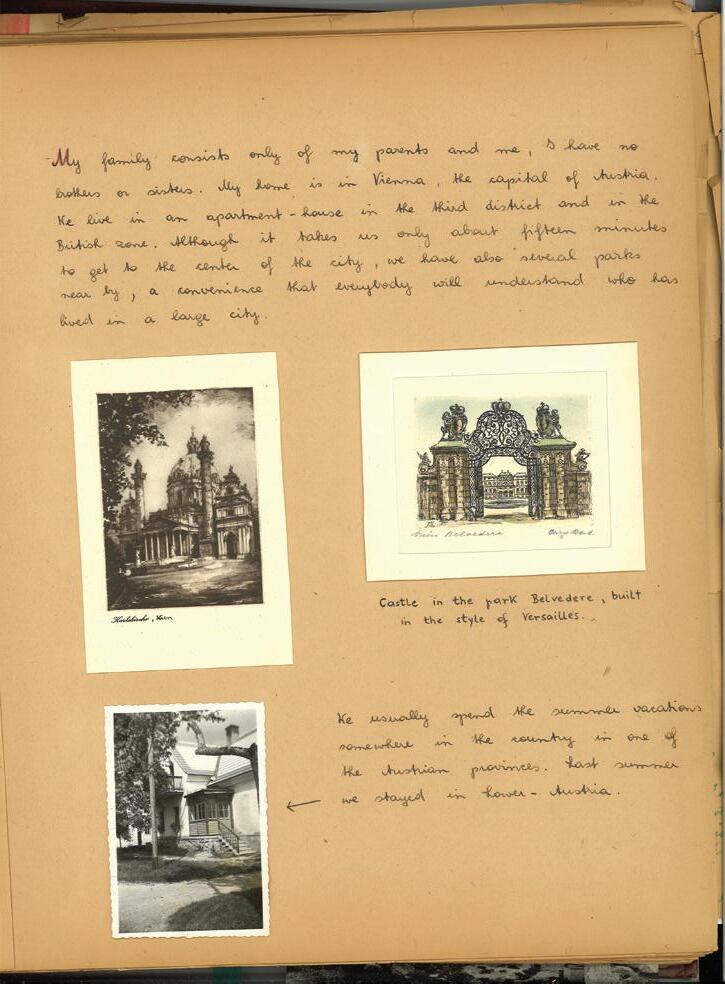 My family consists only of my parents and me, I have no
brothers or sisters. My home is in Vienna, the capital of Austria.
We live in an apartment-house in the third district and in the
British zone. Although it takes us only about fifteen minutes
to get to the center of the city, we have also several parks
near by, a convenience that everybody will understand who has
lived in a large city.
Karlskirche, Wien
Wien Belvedere
Castle in the park Belvedere, built
in the style of Versailles.
We usually spend the summer vacations
somewhere in the country in one of
the Austrian provinces. Last summer
← we stayed in Lower-Austria.